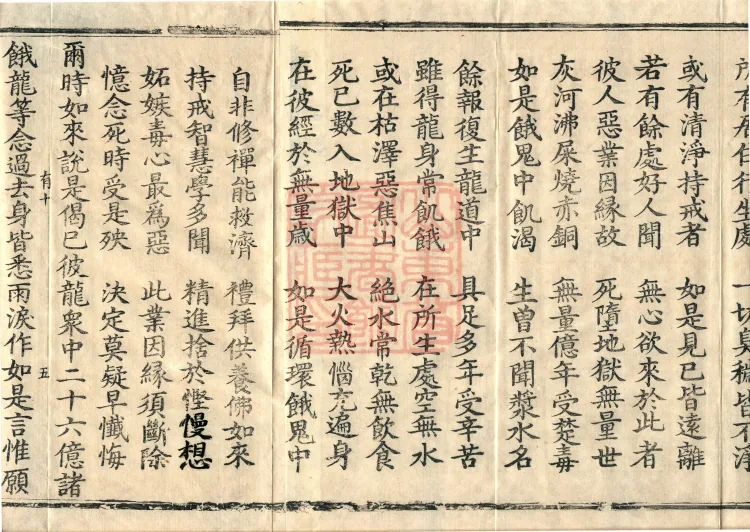 所有住行處　一切臭穢皆不淨
或有清淨持戒者　如是見已皆遠離
若有餘處好人聞　無心欲來於此者
彼人惡業因緣故　死墮地獄無量世
灰河沸屎燒赤銅　無量億年受楚毒
如是餓鬼中飢渴　生曾不聞漿水名
餘報復生龍道中　具足多年受辛苦
雖得龍身常飢餓　在所生處空無水
或在枯澤惡焦山　絕水常乾無飲食
死已數入地獄中　大火熱惱充遍身
在彼經於無量歲　如是循環餓鬼中
自非修禪能救濟　禮拜供養佛如來
持戒智慧學多聞　精進捨於慳慢想
妬嫉毒心最爲惡　此業因緣須斷除
憶念死時受是殃　決定莫疑早懺悔
爾時如來說是偈已彼龍衆中二十六億諸
有十　五
餓龍等念過去身皆悉雨淚作如是言惟願